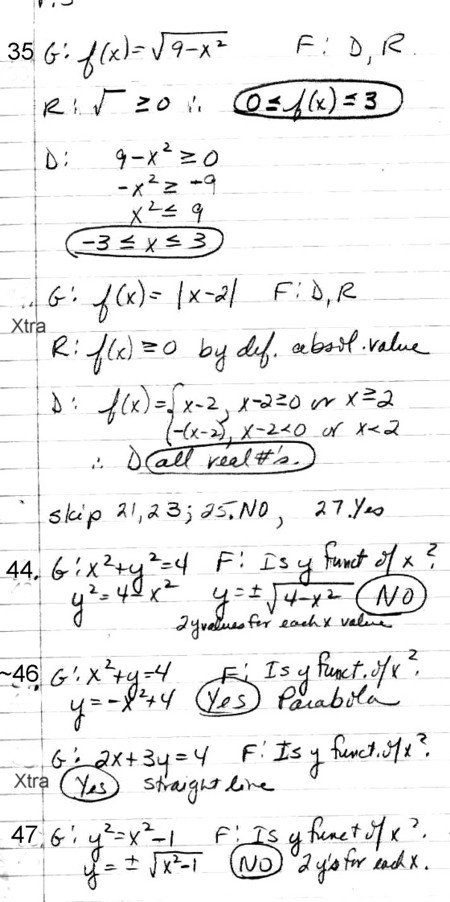 35 G: f(x)=√9-x² F: D, R.
R: √ ≥0 ∴ 0≤f(x)≤3
D: 9-x²≥0
-x²≥-9
x²≤9
-3≤x≤3
G: f(x)=|x-2| F: D, R
Xtra
R: f(x)≥0 by def. absol. value
D: f(x)={x-2, x-2≥0 or x≥2
{-(x-2), x-2<0 or x<2
∴ D all real #'s.
skip 21, 23; 25. NO, 27. Yes
44. G: x²+y²=4 F: Is y funct of x?
y²=4-x² y=±√4-x² NO
2 y values for each x value
~46. G: x²+y=4 F: Is y funct. of x?
y=-x²+4 Yes Parabola
G: 2x+3y=4 F: Is y funct. of x?
Xtra Yes straight line
47. G: y²=x²-1 F: Is y funct of x?
y=±√x²-1 NO 2 y's for each x.